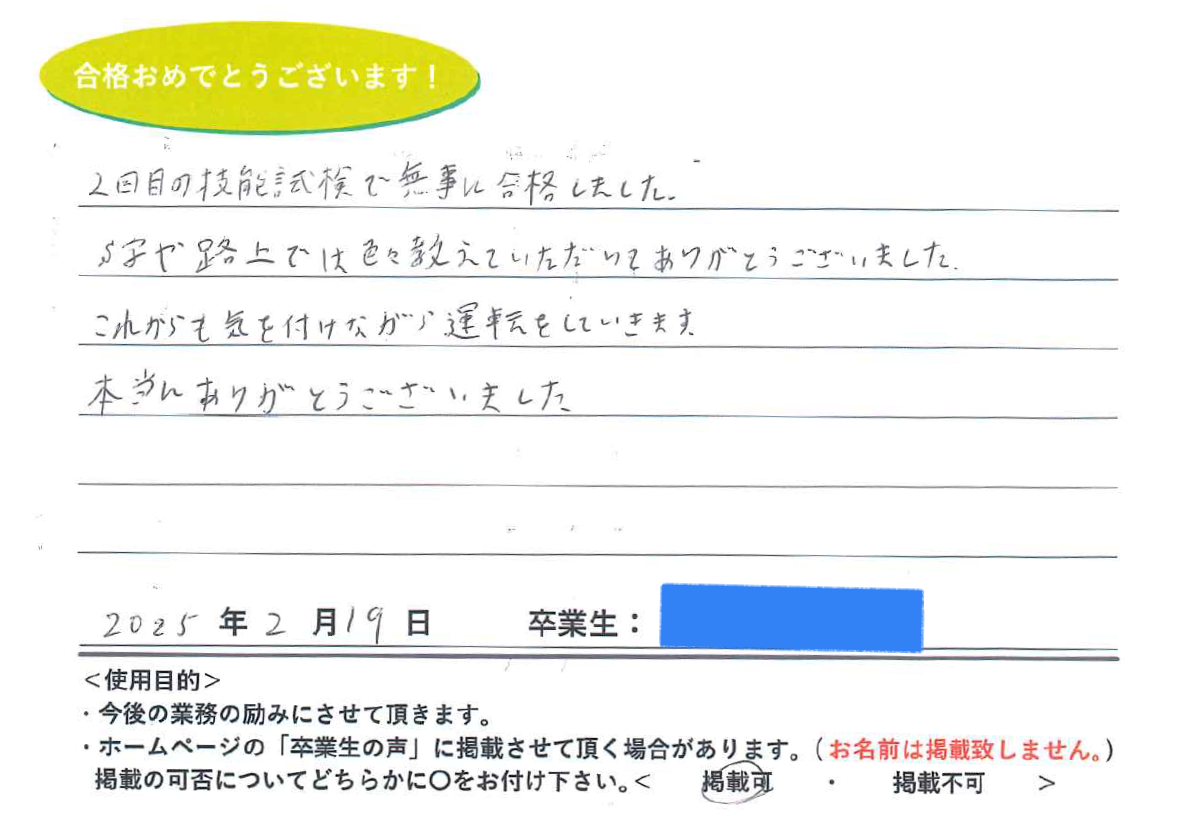 合格おめでとうございます！
2回目の技能試検で無事に合格しました。
S字や路上では色々教えていただいてありがとうございました。
これからも気を付けながら運転をしていきます
本当にありがとうございました
2025年2月19日 卒業生：
＜使用目的＞
・今後の業務の励みにさせて頂きます。
・ホームページの「卒業生の声」に掲載させて頂く場合があります。（お名前は掲載致しません。）
掲載の可否についてどちらかに〇をお付け下さい。＜ 掲載可 ・ 掲載不可 ＞